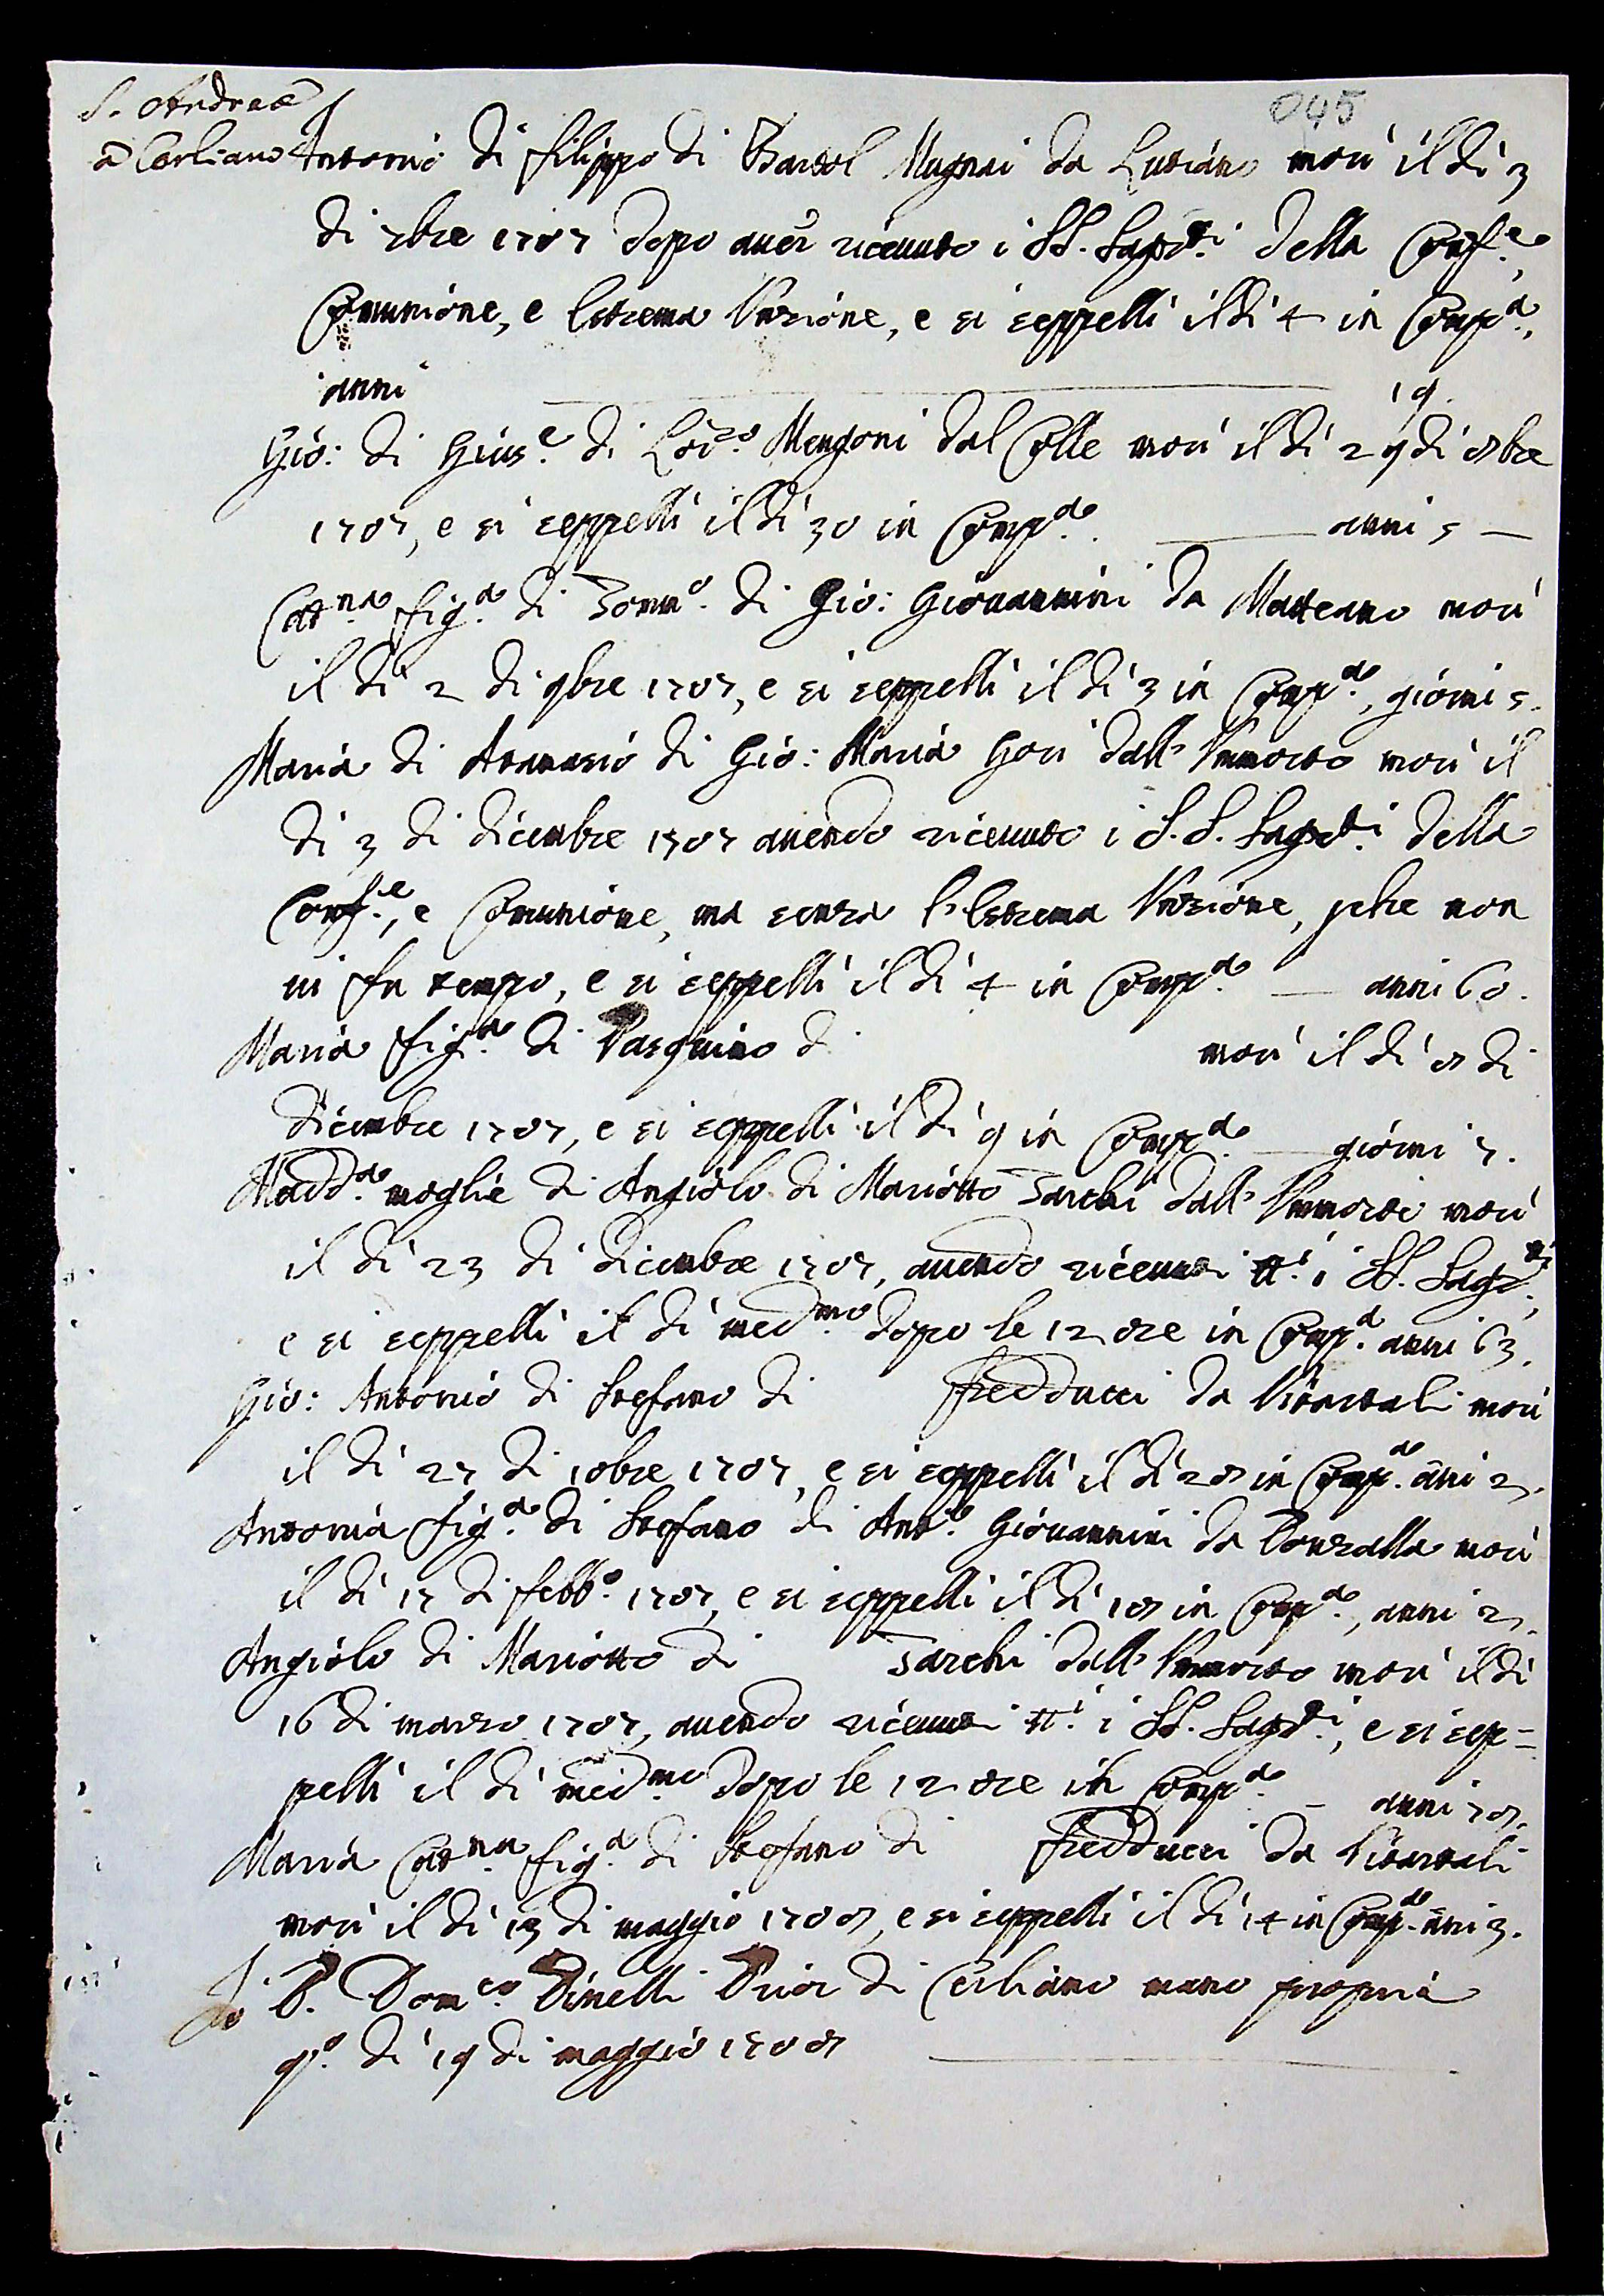 S. Andrea
a Cerliano
045
Antonio di Filippo di Bartol Mugnai da Lutiano morì il dì 3
di 7bre 1707 dopo aver riceuuto i SS. Sagr.ti della Conf.e,
Comunione, e Estrema Unzione, e si seppellì il dì 4 in Comp.a,
anni 19.
Gio: di Gius.e di Lor.zo Mengoni dal Colle morì il dì 29 di 8bre
1707, e si seppellì il dì 30 in Comp.a anni 5
Cat.na fig.a di Tomm.o di Gio: Giouannini da Matteano morì
il dì 2 di 9bre 1707, e si seppellì il dì 3 in Comp.a, giorni 5.
Maria di Atanasio di Gio: Maria Gori dall' Ummorto morì il
dì 3 di Dicembre 1707 auendo riceuuto i S.S. Sagr.ti della
Conf.e, e Comunione, ma senza l'Estrema Unzione, pche non
ui fu tempo, e si seppellì il dì 4 in Comp.a anni 60.
Maria fig.a di Pasquino d morì il dì 8 di
Dicembre 1707, e si seppellì il dì 9 in Comp.a giorni 7.
Madd.a moglie di Angiolo di Mariotto Tarchi dall' Ummorto morì
il dì 23 di Dicembre 1707, auendo riceuuti tt.i i SS. Sagr.ti,
e si seppellì il dì med.mo dopo le 12 ore in Comp.a anni 63.
Gio: Antonio di Stefano di Fredducci da Vitartali morì
il dì 27 di 10bre 1707, e si seppellì il dì 28 in Comp.a ani 2.
Antonia fig.a di Stefano di Ant.o Giouannini da morì
il dì 17 di Febb.o 1707, e si seppellì il dì 18 in Comp.a, anni 2.
Angiolo di Mariotto di Tarchi dall' Ummorto morì il dì
16 di marzo 1707, auendo riceuuti tt.i i SS. Sagr.ti, e si sep=
pellì il dì med.mo dopo le 12 ore in Comp.a anni 78.
Maria Cat.na fig.a di Stefano di Fredducci da Vitartali
morì il dì 13 di maggio 1708, e si seppellì il dì 14 in Comp.a ani 3.
Io P. Dom.co Dinelli Prior di Cerliano mano propria
q.o dì 19 di maggio 1708